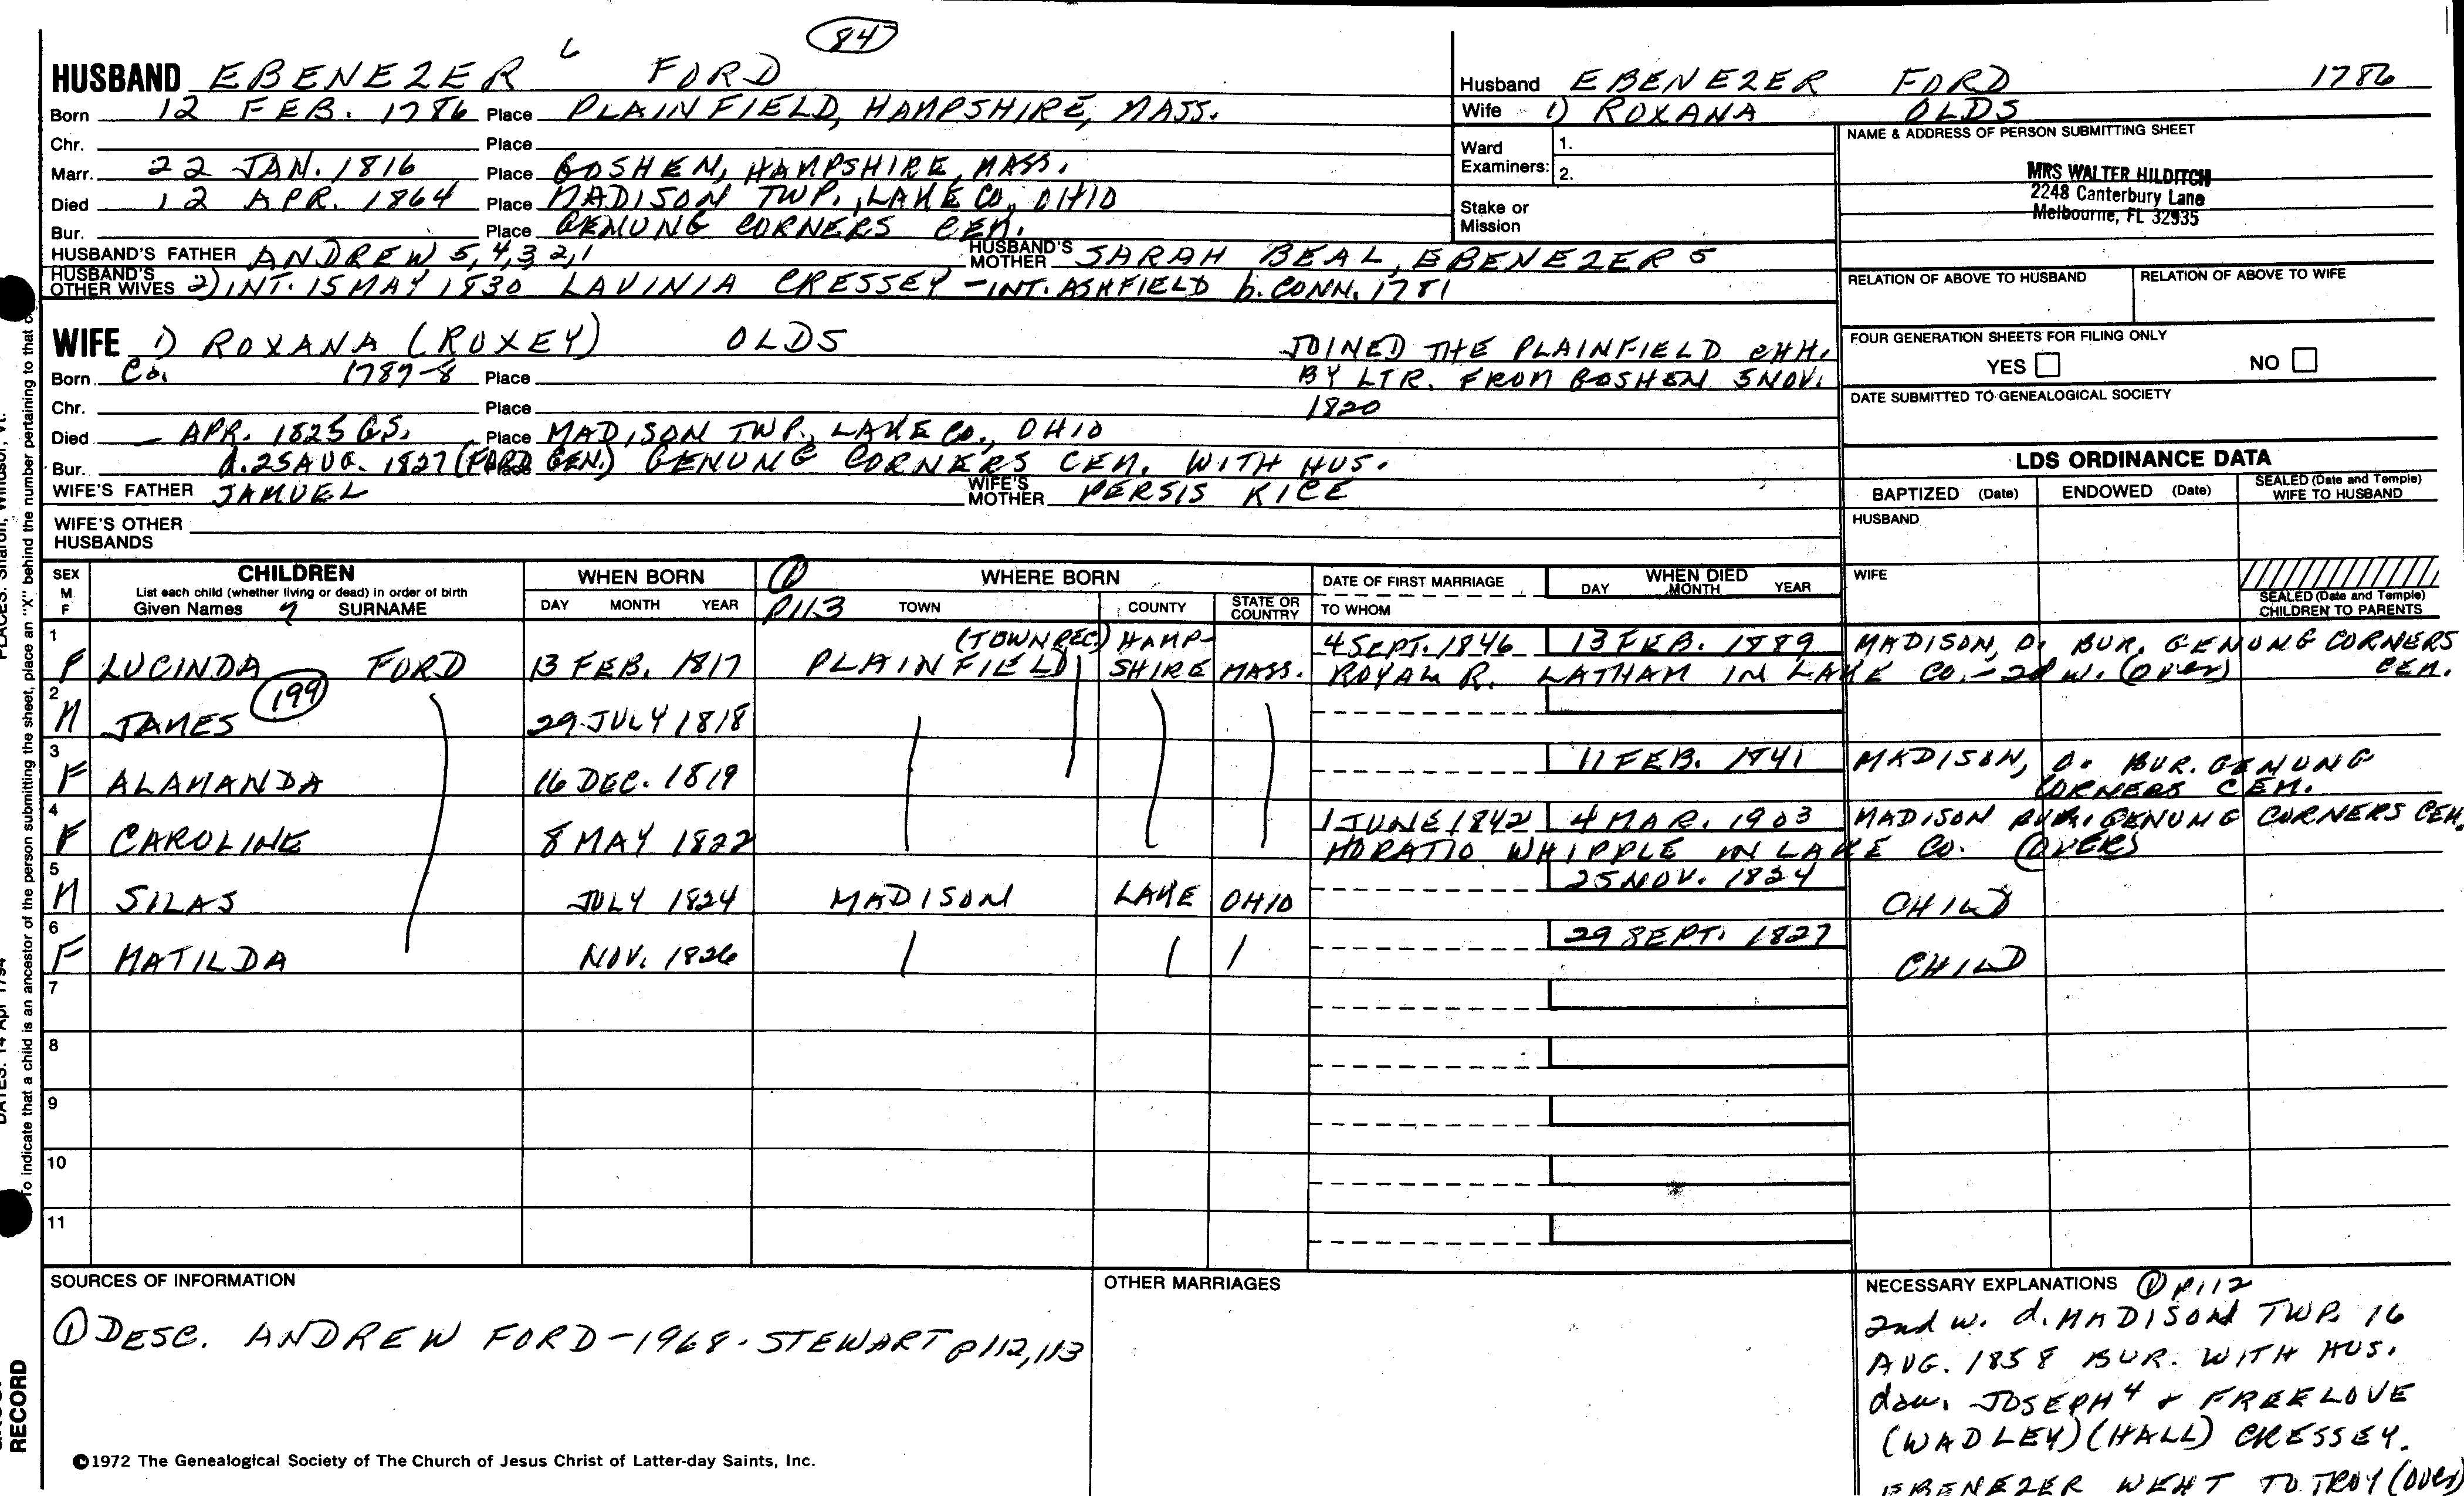 84
HUSBAND EBENEZER 6 FORD
Born 12 FEB. 1786 Place PLAINFIELD, HAMPSHIRE, MASS.
Chr. Place
Marr. 22 JAN. 1816 Place GOSHEN, HAMPSHIRE, MASS.
Died 12 APR. 1864 Place MADISON TWP., LAKE CO., OHIO
Bur. Place GENUNG CORNERS CEM.
HUSBAND'S FATHER ANDREW 5,4,3,2,1 HUSBAND'S MOTHER SARAH BEAL, EBENEZER 5
HUSBAND'S OTHER WIVES 2) INT. 15 MAY 1830 LAVINIA CRESSEY - INT. ASHFIELD b. CONN. 1781
WIFE 1) ROXANA (ROXEY) OLDS
JOINED THE PLAINFIELD CHH.
Born Ca. 1787-8 Place
BY LTR. FROM GOSHEN 5 NOV.
Chr. Place
1820
Died — APR. 1825 G.S. Place MADISON TWP., LAKE CO., OHIO
Bur. d. 25 AUG. 1827 (FORD GEN.) GENUNG CORNERS CEM. WITH HUS.
WIFE'S FATHER SAMUEL WIFE'S MOTHER PERSIS RICE
WIFE'S OTHER HUSBANDS
Husband EBENEZER FORD 1786
Wife 1) ROXANA OLDS
Ward Examiners: 1.
2.
Stake or Mission
NAME & ADDRESS OF PERSON SUBMITTING SHEET
MRS WALTER HILDITCH
2248 Canterbury Lane
Melbourne, FL 32935
RELATION OF ABOVE TO HUSBAND RELATION OF ABOVE TO WIFE
FOUR GENERATION SHEETS FOR FILING ONLY
YES NO
DATE SUBMITTED TO GENEALOGICAL SOCIETY
LDS ORDINANCE DATA
BAPTIZED (Date) ENDOWED (Date) SEALED (Date and Temple) WIFE TO HUSBAND
HUSBAND
WIFE
SEALED (Date and Temple) CHILDREN TO PARENTS
SEX M F
CHILDREN
List each child (whether living or dead) in order of birth
Given Names 7 SURNAME
WHEN BORN
DAY MONTH YEAR
① P113
WHERE BORN
TOWN COUNTY STATE OR COUNTRY
DATE OF FIRST MARRIAGE
TO WHOM
WHEN DIED
DAY MONTH YEAR
1 (TOWN REC) HAMP- 4 SEPT. 1846 13 FEB. 1889 MADISON, O. BUR. GENUNG CORNERS
F LUCINDA FORD 13 FEB. 1817 PLAINFIELD SHIRE MASS. ROYAL R. LATHAM IN LAKE CO. - 2d w. (over) CEM.
2 199
M JAMES 29 JULY 1818
3 11 FEB. 1841 MADISON, O. BUR. GENUNG
F ALAMANDA 16 DEC. 1819 CORNERS CEM.
4 1 JUNE 1842 4 MAR. 1903 MADISON BUR. GENUNG CORNERS CEM.
F CAROLINE 8 MAY 1822 HORATIO WHIPPLE IN LAKE CO.
5 25 NOV. 1824
M SILAS JULY 1824 MADISON LAKE OHIO CHILD
6 29 SEPT. 1827
F MATILDA NOV. 1826 CHILD
7
8
9
10
11
SOURCES OF INFORMATION
① DESC. ANDREW FORD - 1968 - STEWART p112,113
OTHER MARRIAGES
NECESSARY EXPLANATIONS ① P112
2nd w. d. MADISON TWP. 16
AUG. 1858 BUR. WITH HUS.
dau. JOSEPH 4 + FREELOVE
(WADLEY) (HALL) CRESSEY.
EBENEZER WENT TO TROY (over)
©1972 The Genealogical Society of The Church of Jesus Christ of Latter-day Saints, Inc.
To indicate that a child is an ancestor of the person submitting the sheet, place an "X" behind the number pertaining to that
PLACES: Sharon, Windsor, Vt.
DATES: 14 Apr 1794
RECORD